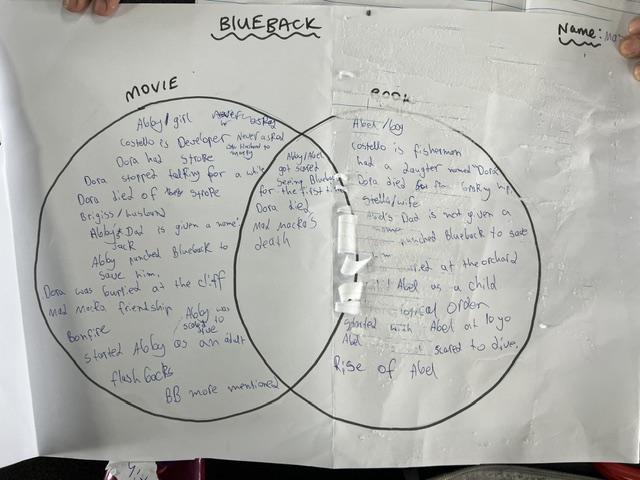 BLUEBACK
Name: Ma
MOVIE
Abby/girl
Costello is Developer Never asked
Dora had stroke
Dora stopped talking for a while
Dora died of stroke
/husband
Abby's Dad is given a name:
Jack
Abby punched Blueback to
save him.
Dora was buried at the cliff
mad macka friendship
Abby was
scared to
dive
Bonfire
started Abby as an adult
flash backs
BB more mentioned
Abby/Abel
got scared
seeing Blueback
for the first time
Dora died
mad macka's
death
BOOK
Abel/boy
costello is fisherman
had a daughter named "Dora"
Dora died
Stella/wife
Dad is not given a
name
punched Blueback to save
at the orchard
Abel as a child
order
started with Abel at 10 yo
Abel scared to dive.
Rise of Abel